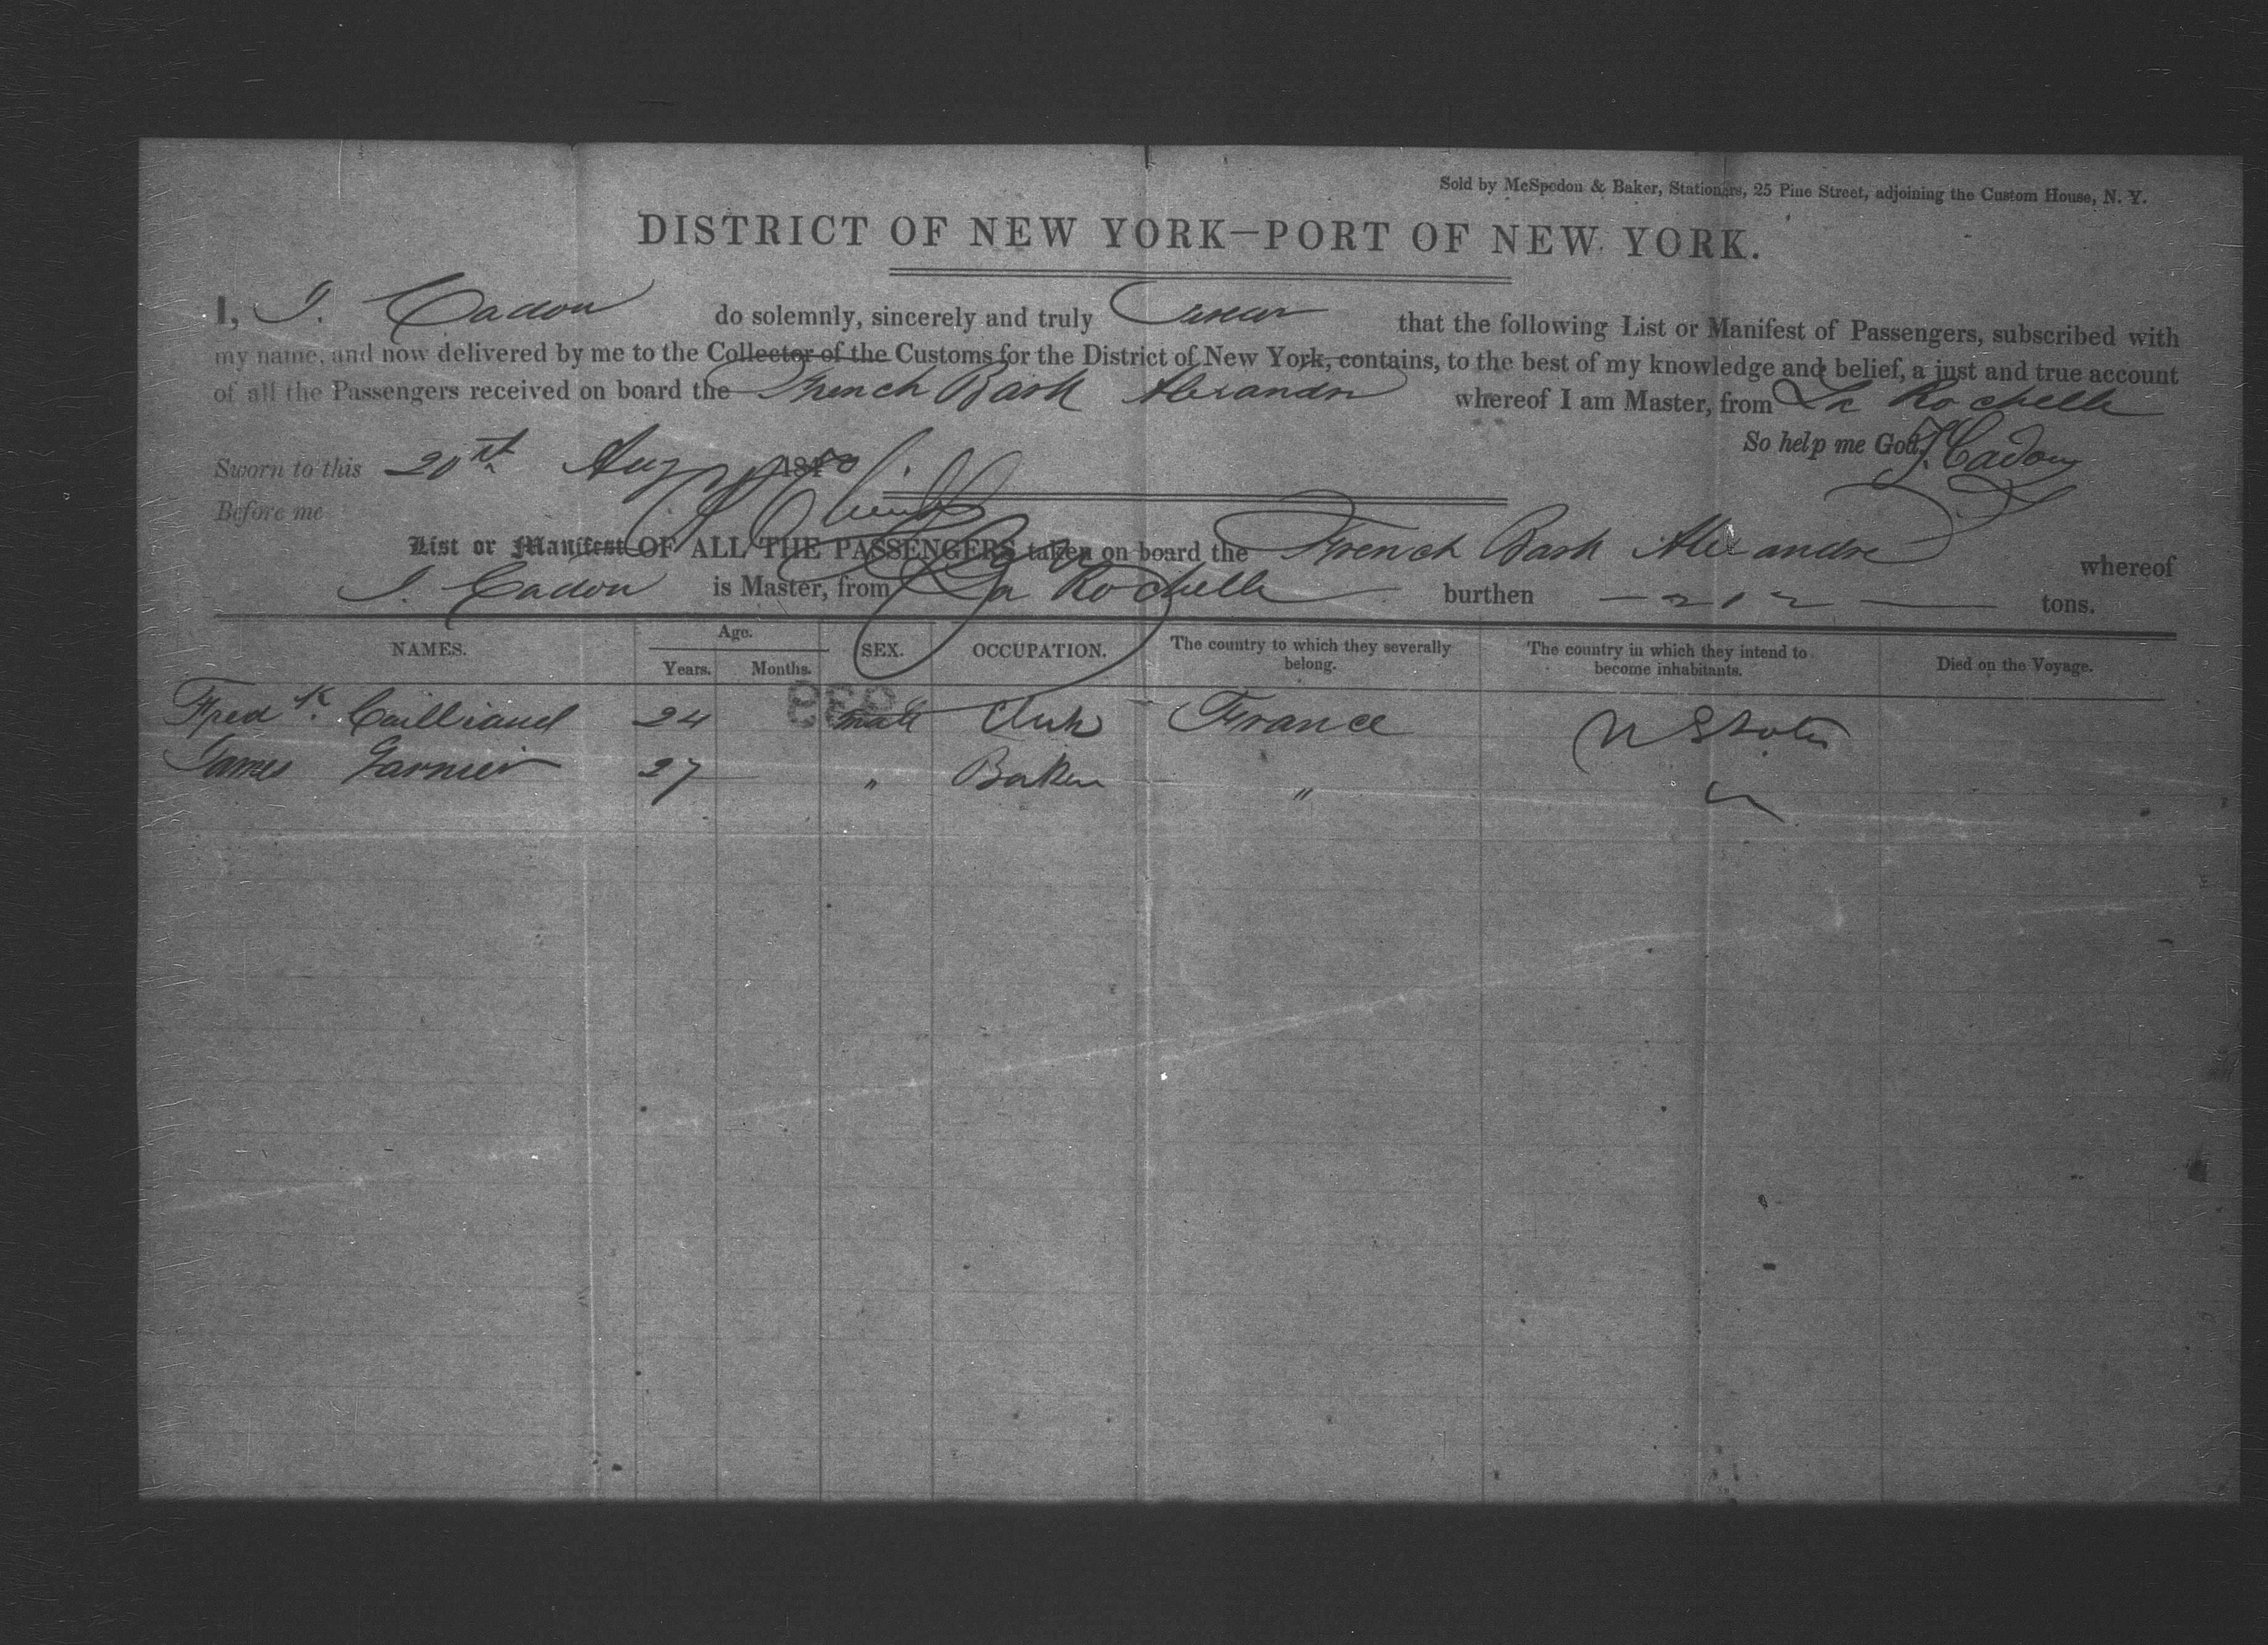 Sold by McSpedon & Baker, Stationers, 25 Pine Street, adjoining the Custom House, N. Y.
DISTRICT OF NEW YORK—PORT OF NEW YORK.
I, J. Cadou do solemnly, sincerely and truly Swear that the following List or Manifest of Passengers, subscribed with
my name, and now delivered by me to the Collector of the Customs for the District of New York, contains, to the best of my knowledge and belief, a just and true account
of all the Passengers received on board the French Bark Alexandre whereof I am Master, from La Rochelle
So help me God. J. Cadou
Sworn to this 20th Aug 1850
Before me
List or Manifest OF ALL THE PASSENGERS taken on board the French Bark Alexandre whereof
J. Cadou is Master, from La Rochelle burthen 212 tons.
NAMES. Age. Years. Months. SEX. OCCUPATION. The country to which they severally belong. The country in which they intend to become inhabitants. Died on the Voyage.
939
Fredk. Cailliaud 24 male Clerk France U States
James Garnier 27 " Baker " "